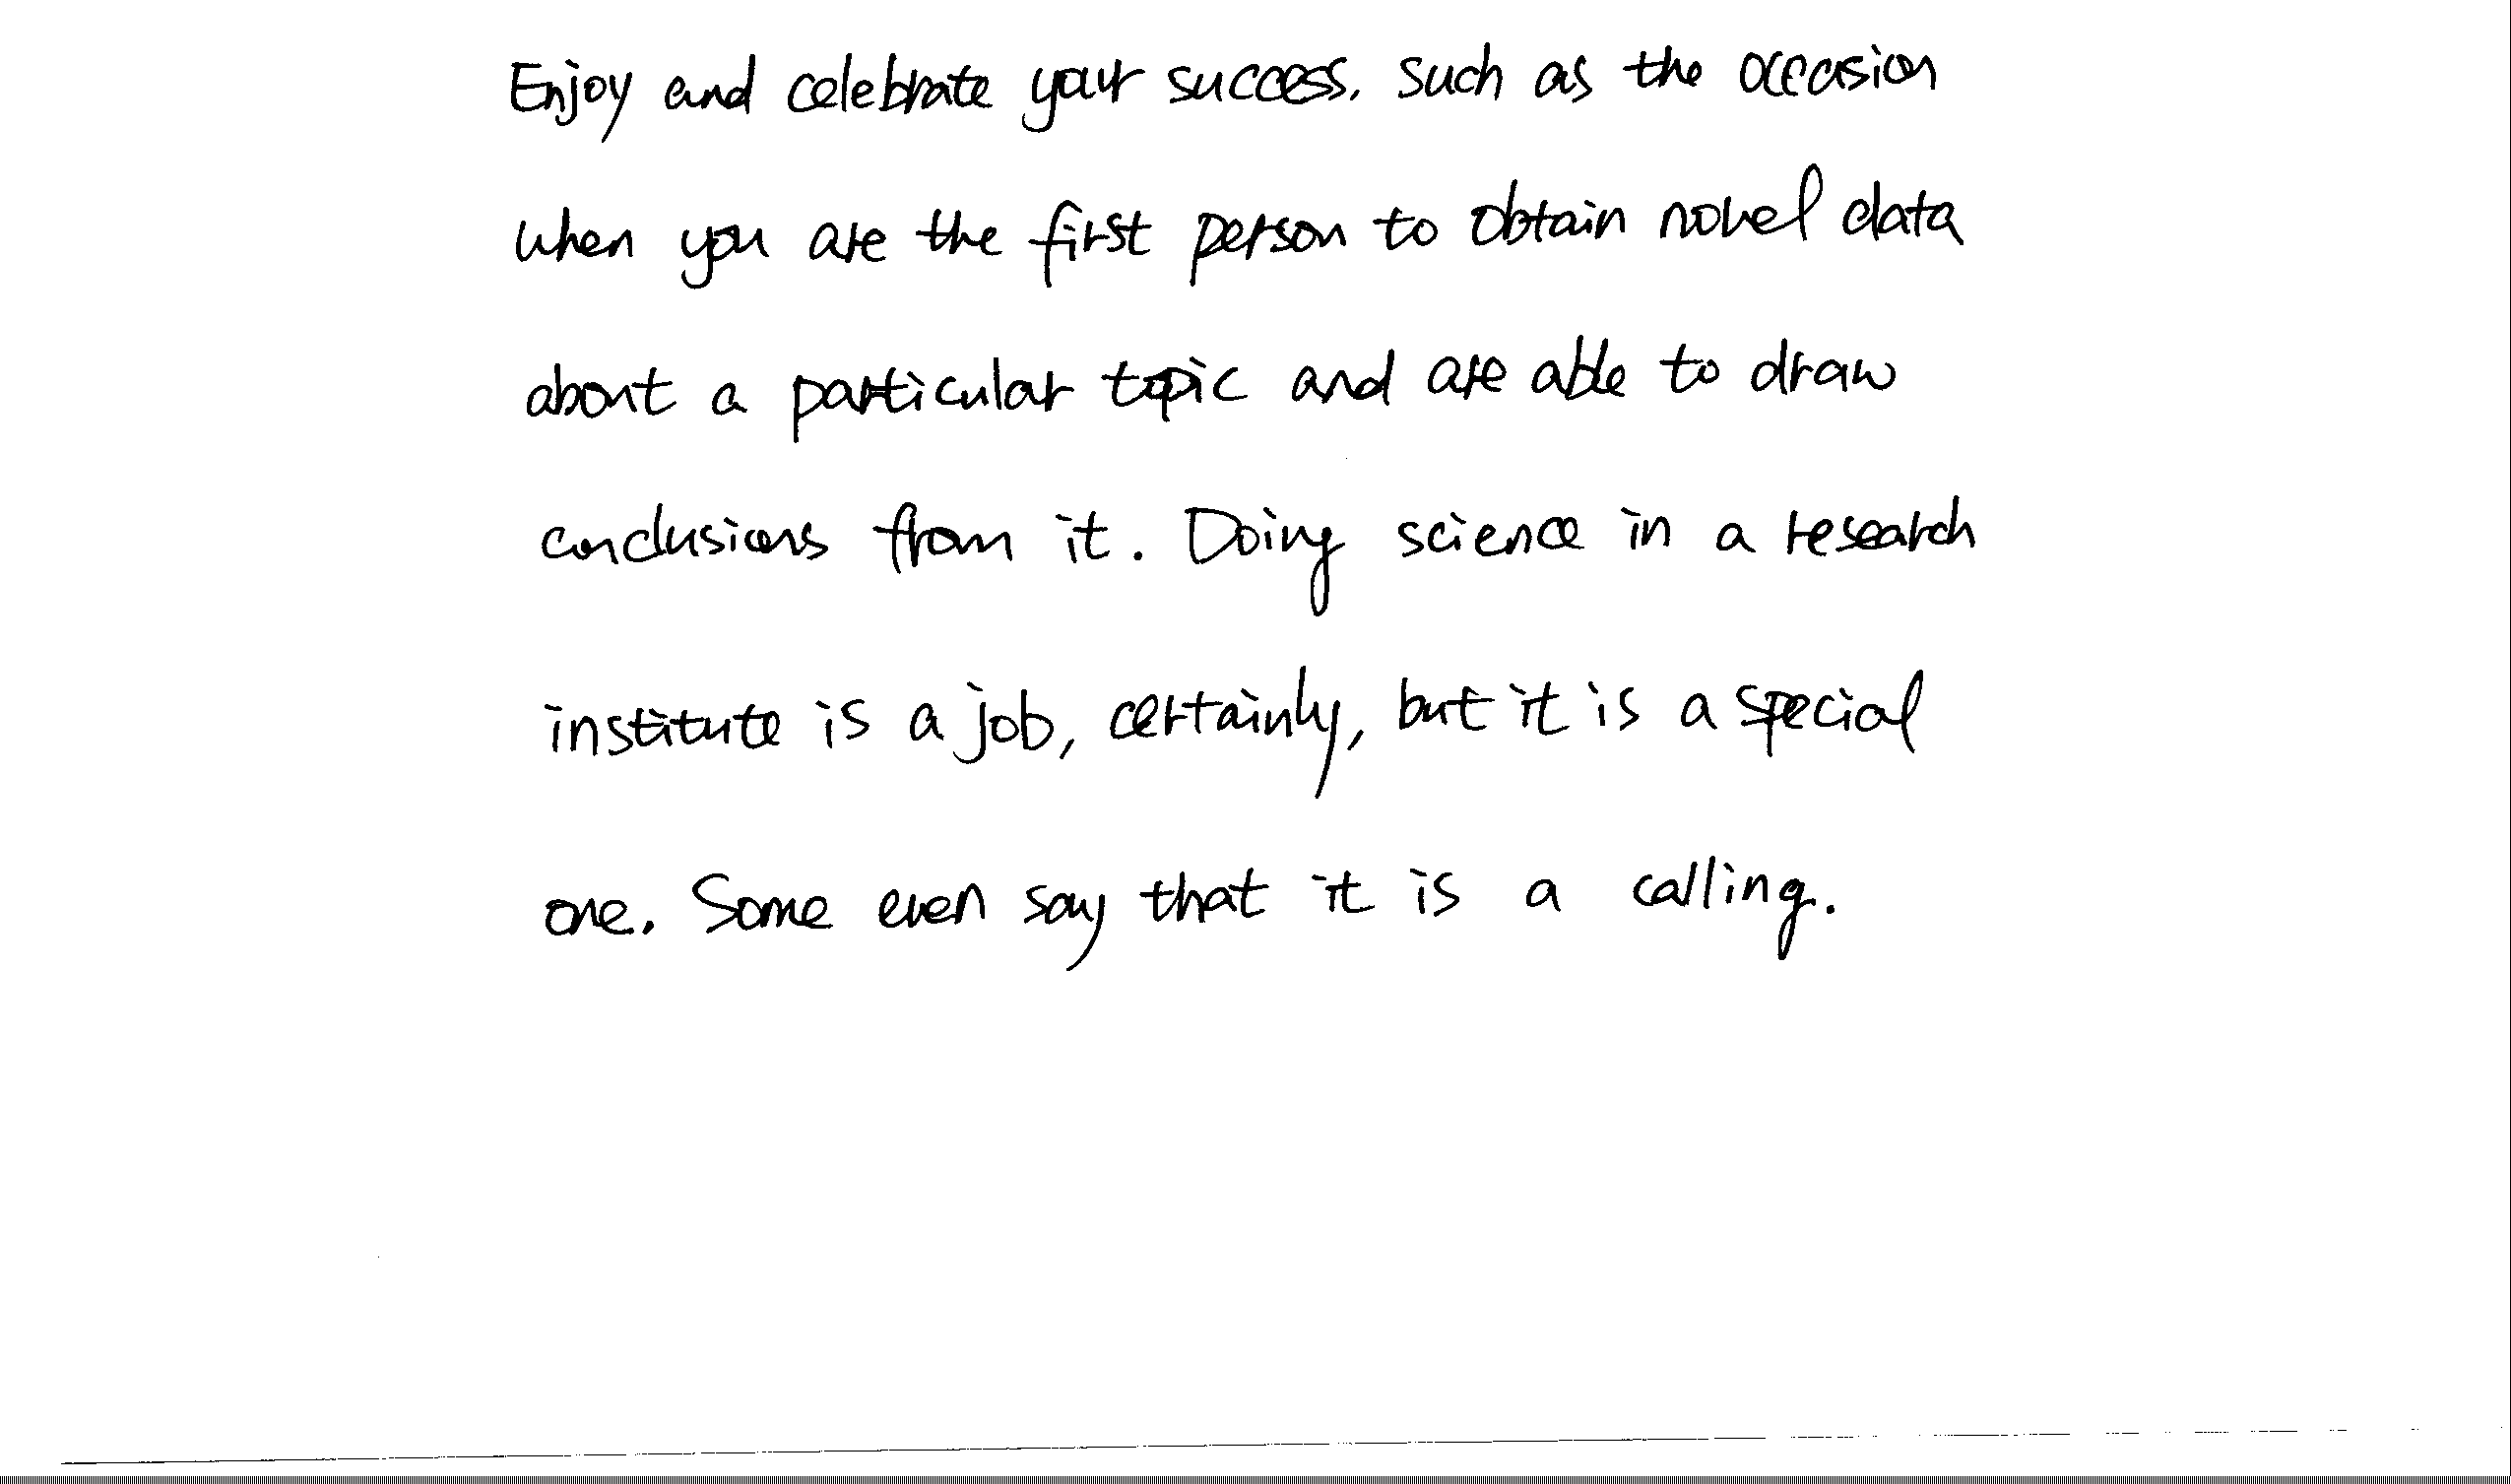 Enjoy and celebrate your success, such as the occasion
when you are the first person to obtain novel data
about a particular topic and are able to draw
conclusions from it. Doing science in a research
institute is a job, certainly, but it is a special
one. Some even say that it is a calling.